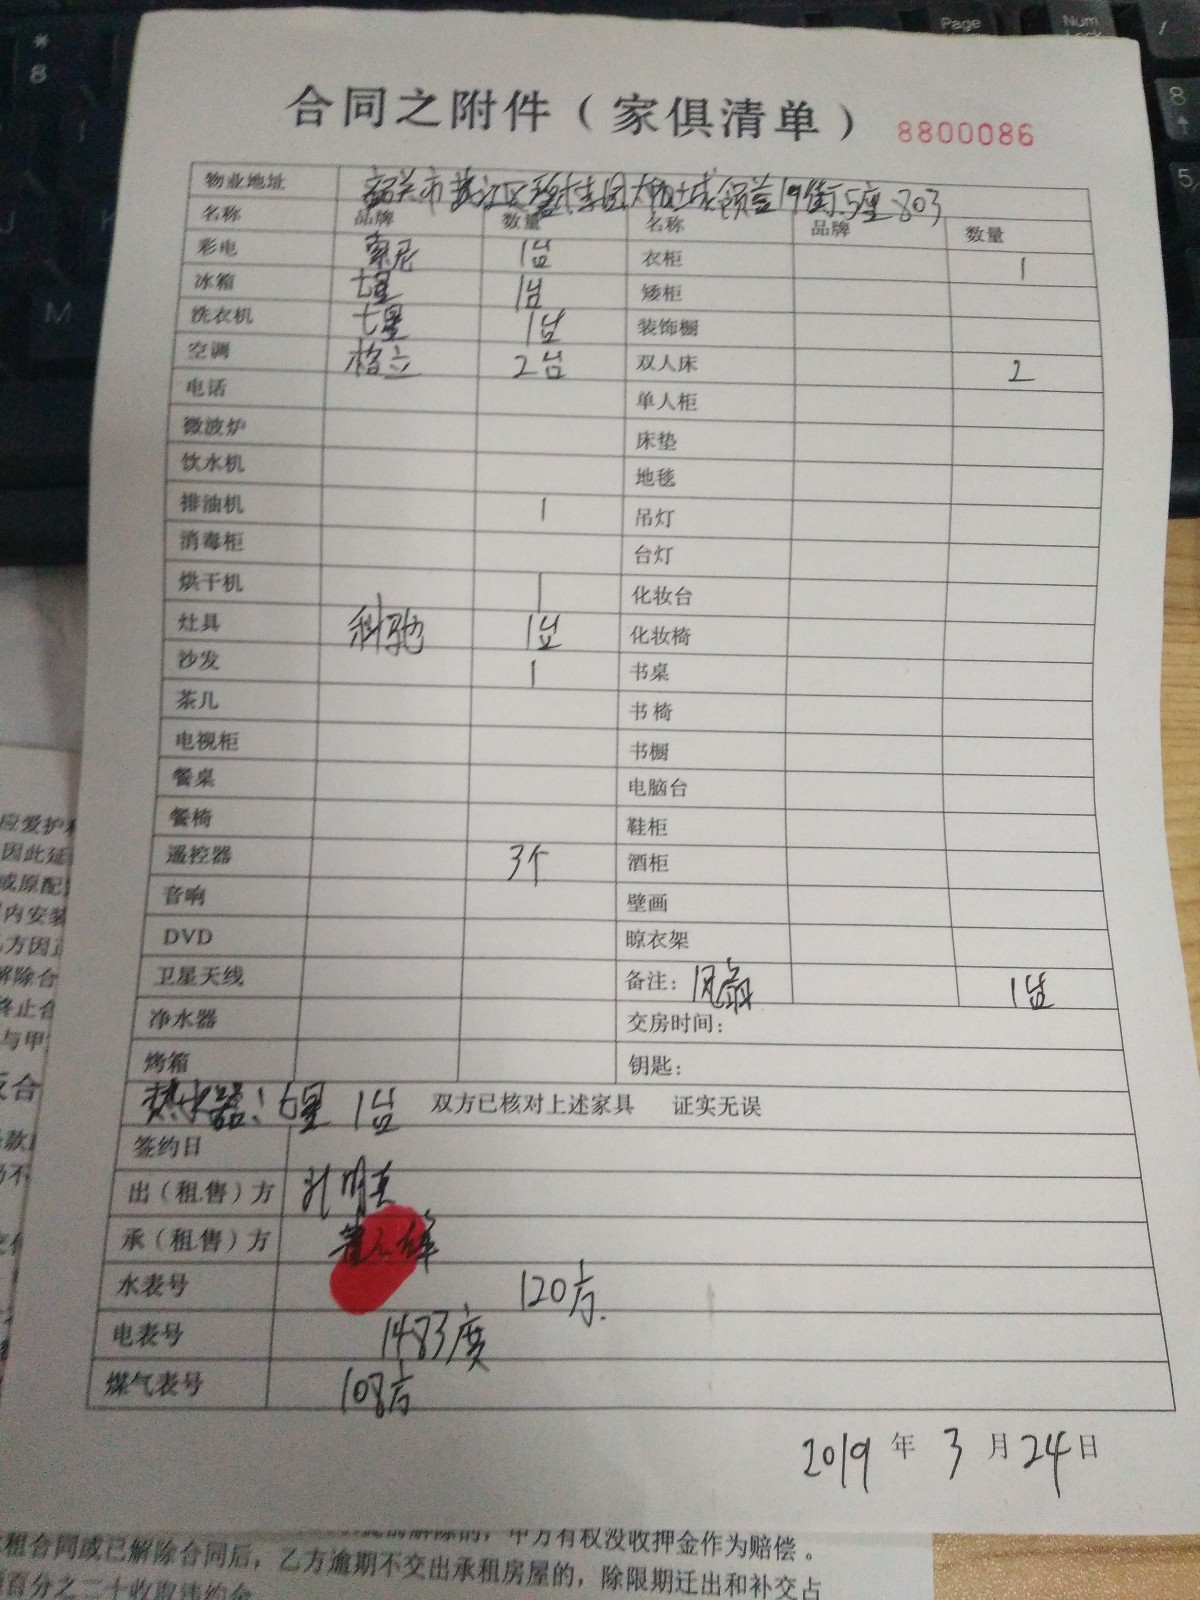 合同之附件（家俱清单） 8800086
物业地址 韶关市浈江区碧桂园太阳城领益19街5座803
名称 品牌 数量 名称 品牌 数量
彩电 索尼 1台 衣柜 1
冰箱 七星 1台 矮柜
洗衣机 七星 1台 装饰橱
空调 格立 2台 双人床 2
电话 单人柜
微波炉 床垫
饮水机 地毯
排油机 1 吊灯
消毒柜 台灯
烘干机 1 化妆台
灶具 科驰 1台 化妆椅
沙发 1 书桌
茶几 书椅
电视柜 书橱
餐桌 电脑台
餐椅 鞋柜
遥控器 3个 酒柜
音响 壁画
DVD 晾衣架
卫星天线 备注：风扇 1台
净水器 交房时间：
烤箱 钥匙：
热水器：七星 1台 双方已核对上述家具 证实无误
签约日
出（租.售）方
承（租.售）方
水表号 120方.
电表号 1483度
煤气表号 108方
2019年3月24日
应爱护
因此延
或原配
内安装
方因正
解除合
终止合
与甲
甲方有权没收押金作为赔偿。
租合同或已解除合同后，乙方逾期不交出承租房屋的，除限期迁出和补交占
百分之二十收取违约金
* 8
M
Page
Num Lock
/
8
5